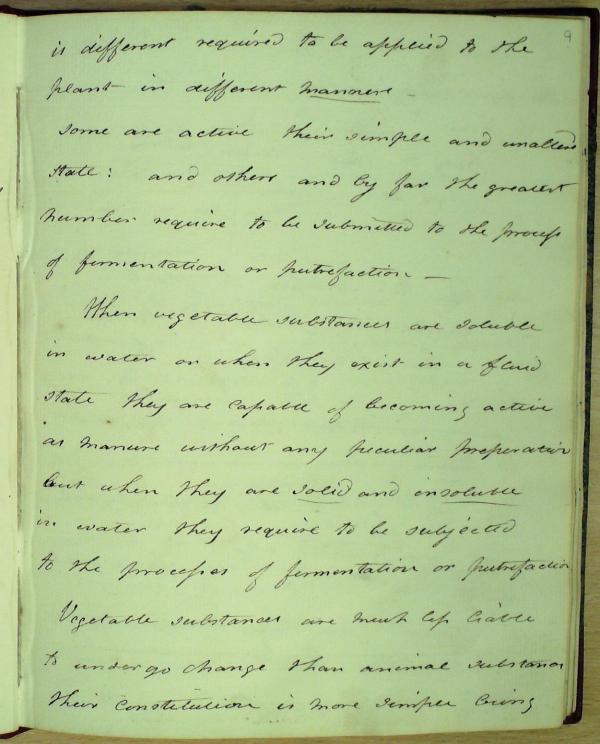 9
is different required to be applied to the
plant in different manners
some are active their simple and unaltered
state: and others and by far the greatest
number require to be submitted to the process
of fermentation or putrefaction —
When vegetable substances are soluble
in water or when they exist in a fluid
state they are capable of becoming active
as manure without any peculiar preparation
but when they are solid and insoluble
in water they require to be subjected
to the processes of fermentation or putrefaction
Vegetable substances are much less liable
to undergo change than animal substances
their constitution is more simple being